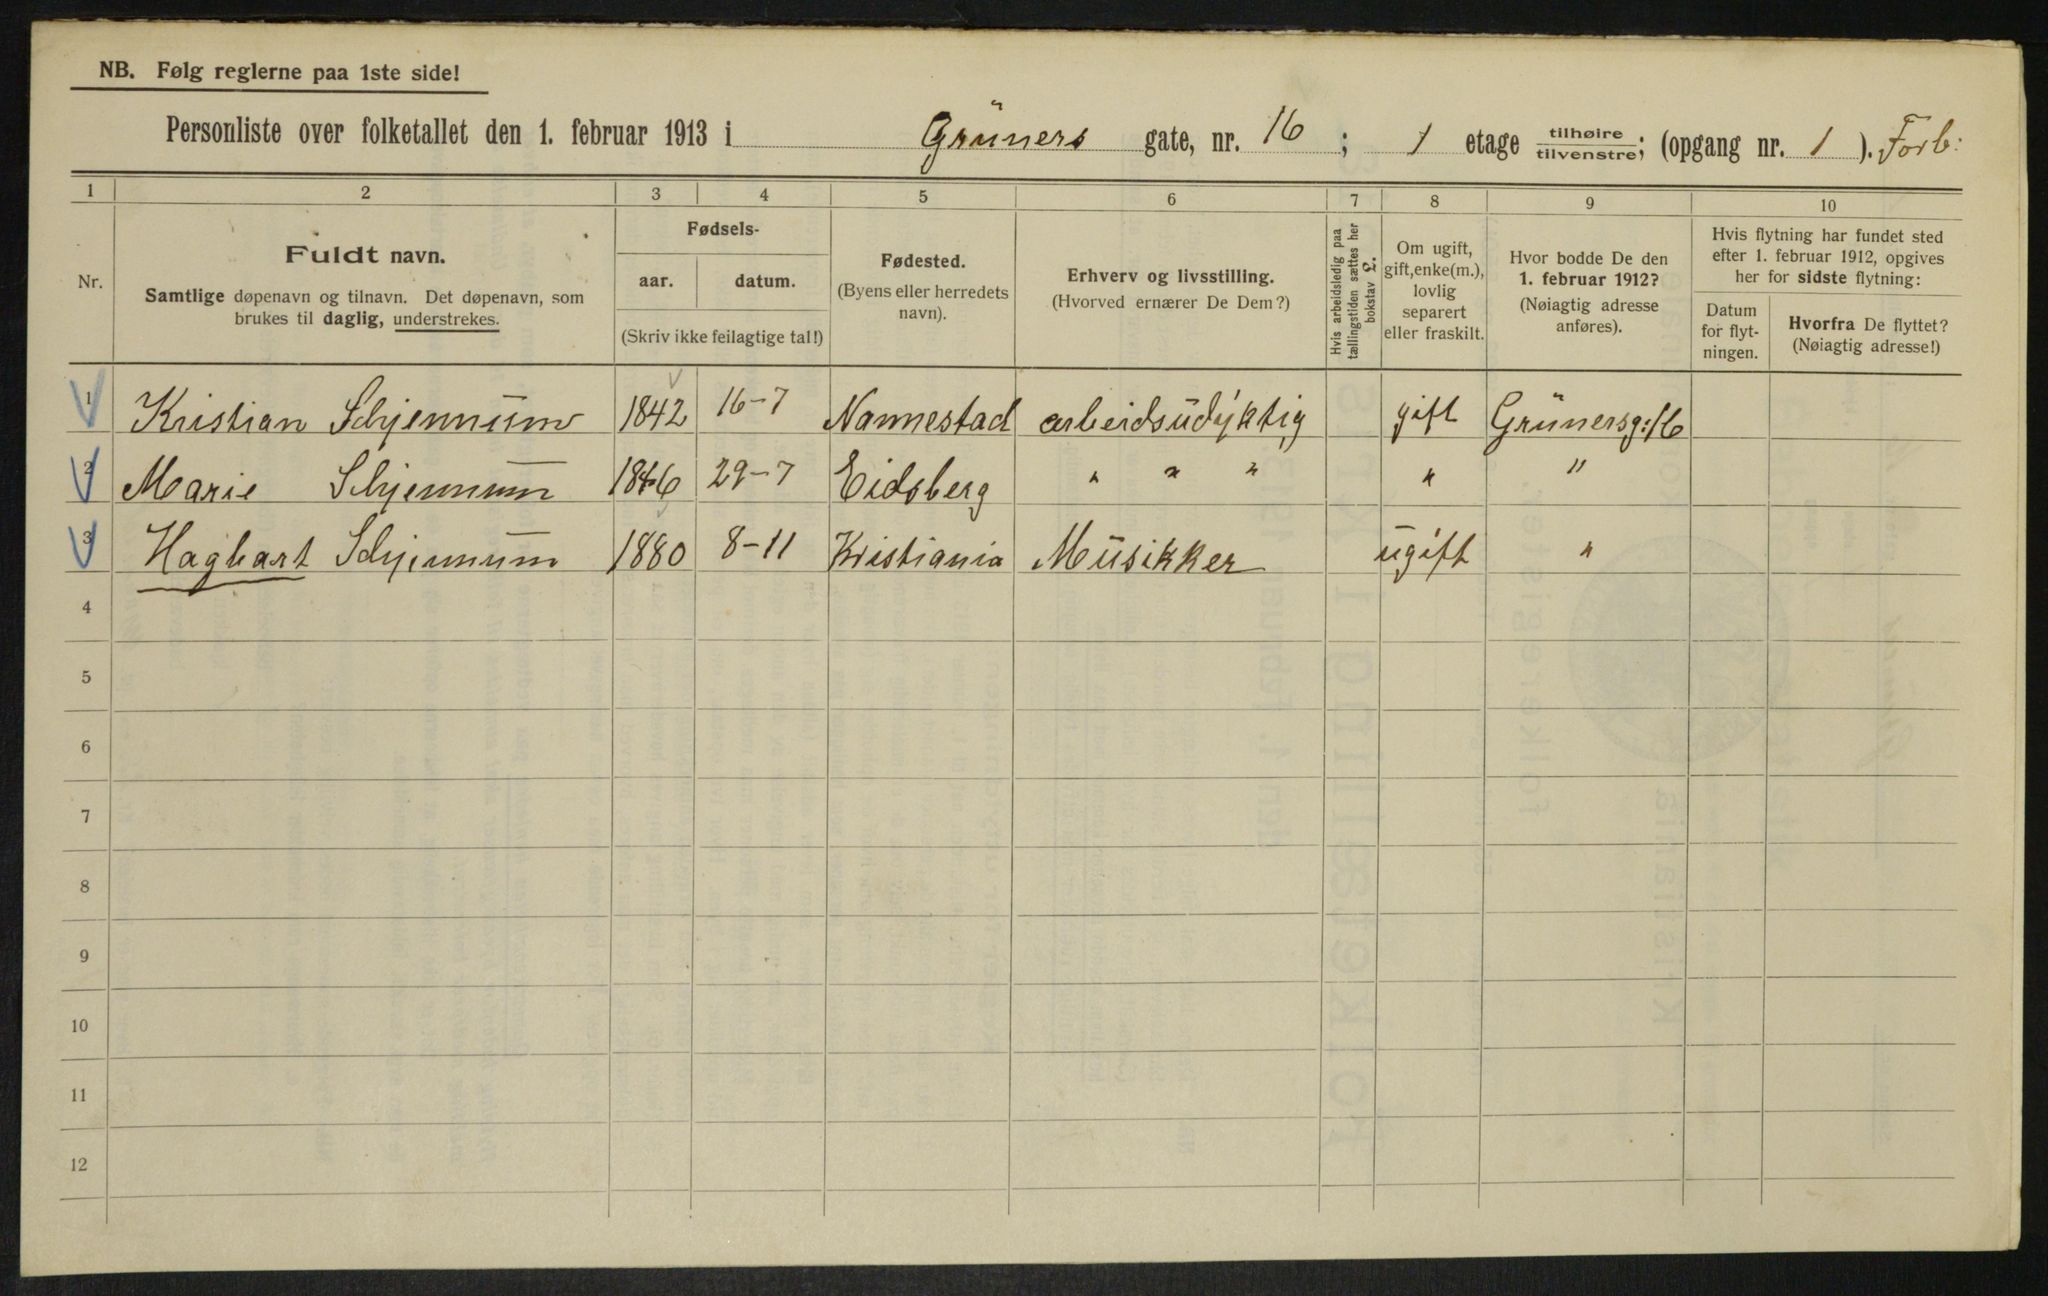 NB. Følg reglerne paa 1ste side!
Personliste over folketallet den 1. februar 1913 i Grüners gate, nr. 16; 1 etage tilhøire/tilvenstre; (opgang nr. 1). Forb:
1 2 3 4 5 6 7 8 9 10
Nr.
Fuldt navn.
Samtlige døpenavn og tilnavn. Det døpenavn, som
brukes til daglig, understrekes.
Fødsels-
aar. datum.
(Skriv ikke feilagtige tal!)
Fødested.
(Byens eller herredets
navn).
Erhverv og livsstilling.
(Hvorved ernærer De Dem?)
Hvis arbeidsledig paa
tællingstiden sættes her
bokstav L.
Om ugift,
gift, enke(m.),
lovlig
separert
eller fraskilt.
Hvor bodde De den
1. februar 1912?
(Nøiagtig adresse
anføres).
Hvis flytning har fundet sted
efter 1. februar 1912, opgives
her for sidste flytning:
Datum
for flyt-
ningen.
Hvorfra De flyttet?
(Nøiagtig adresse!)
1 Kristian Schjennum 1842 16-7 Nannestad arbeidsudyktig gift Grünersg: 16
2 Marie Schjennum 1846 29-7 Eidsberg " " " " "
3 Hagbart Schjennum 1880 8-11 Kristiania Musikker ugift "
4
5
6
7
8
9
10
11
12